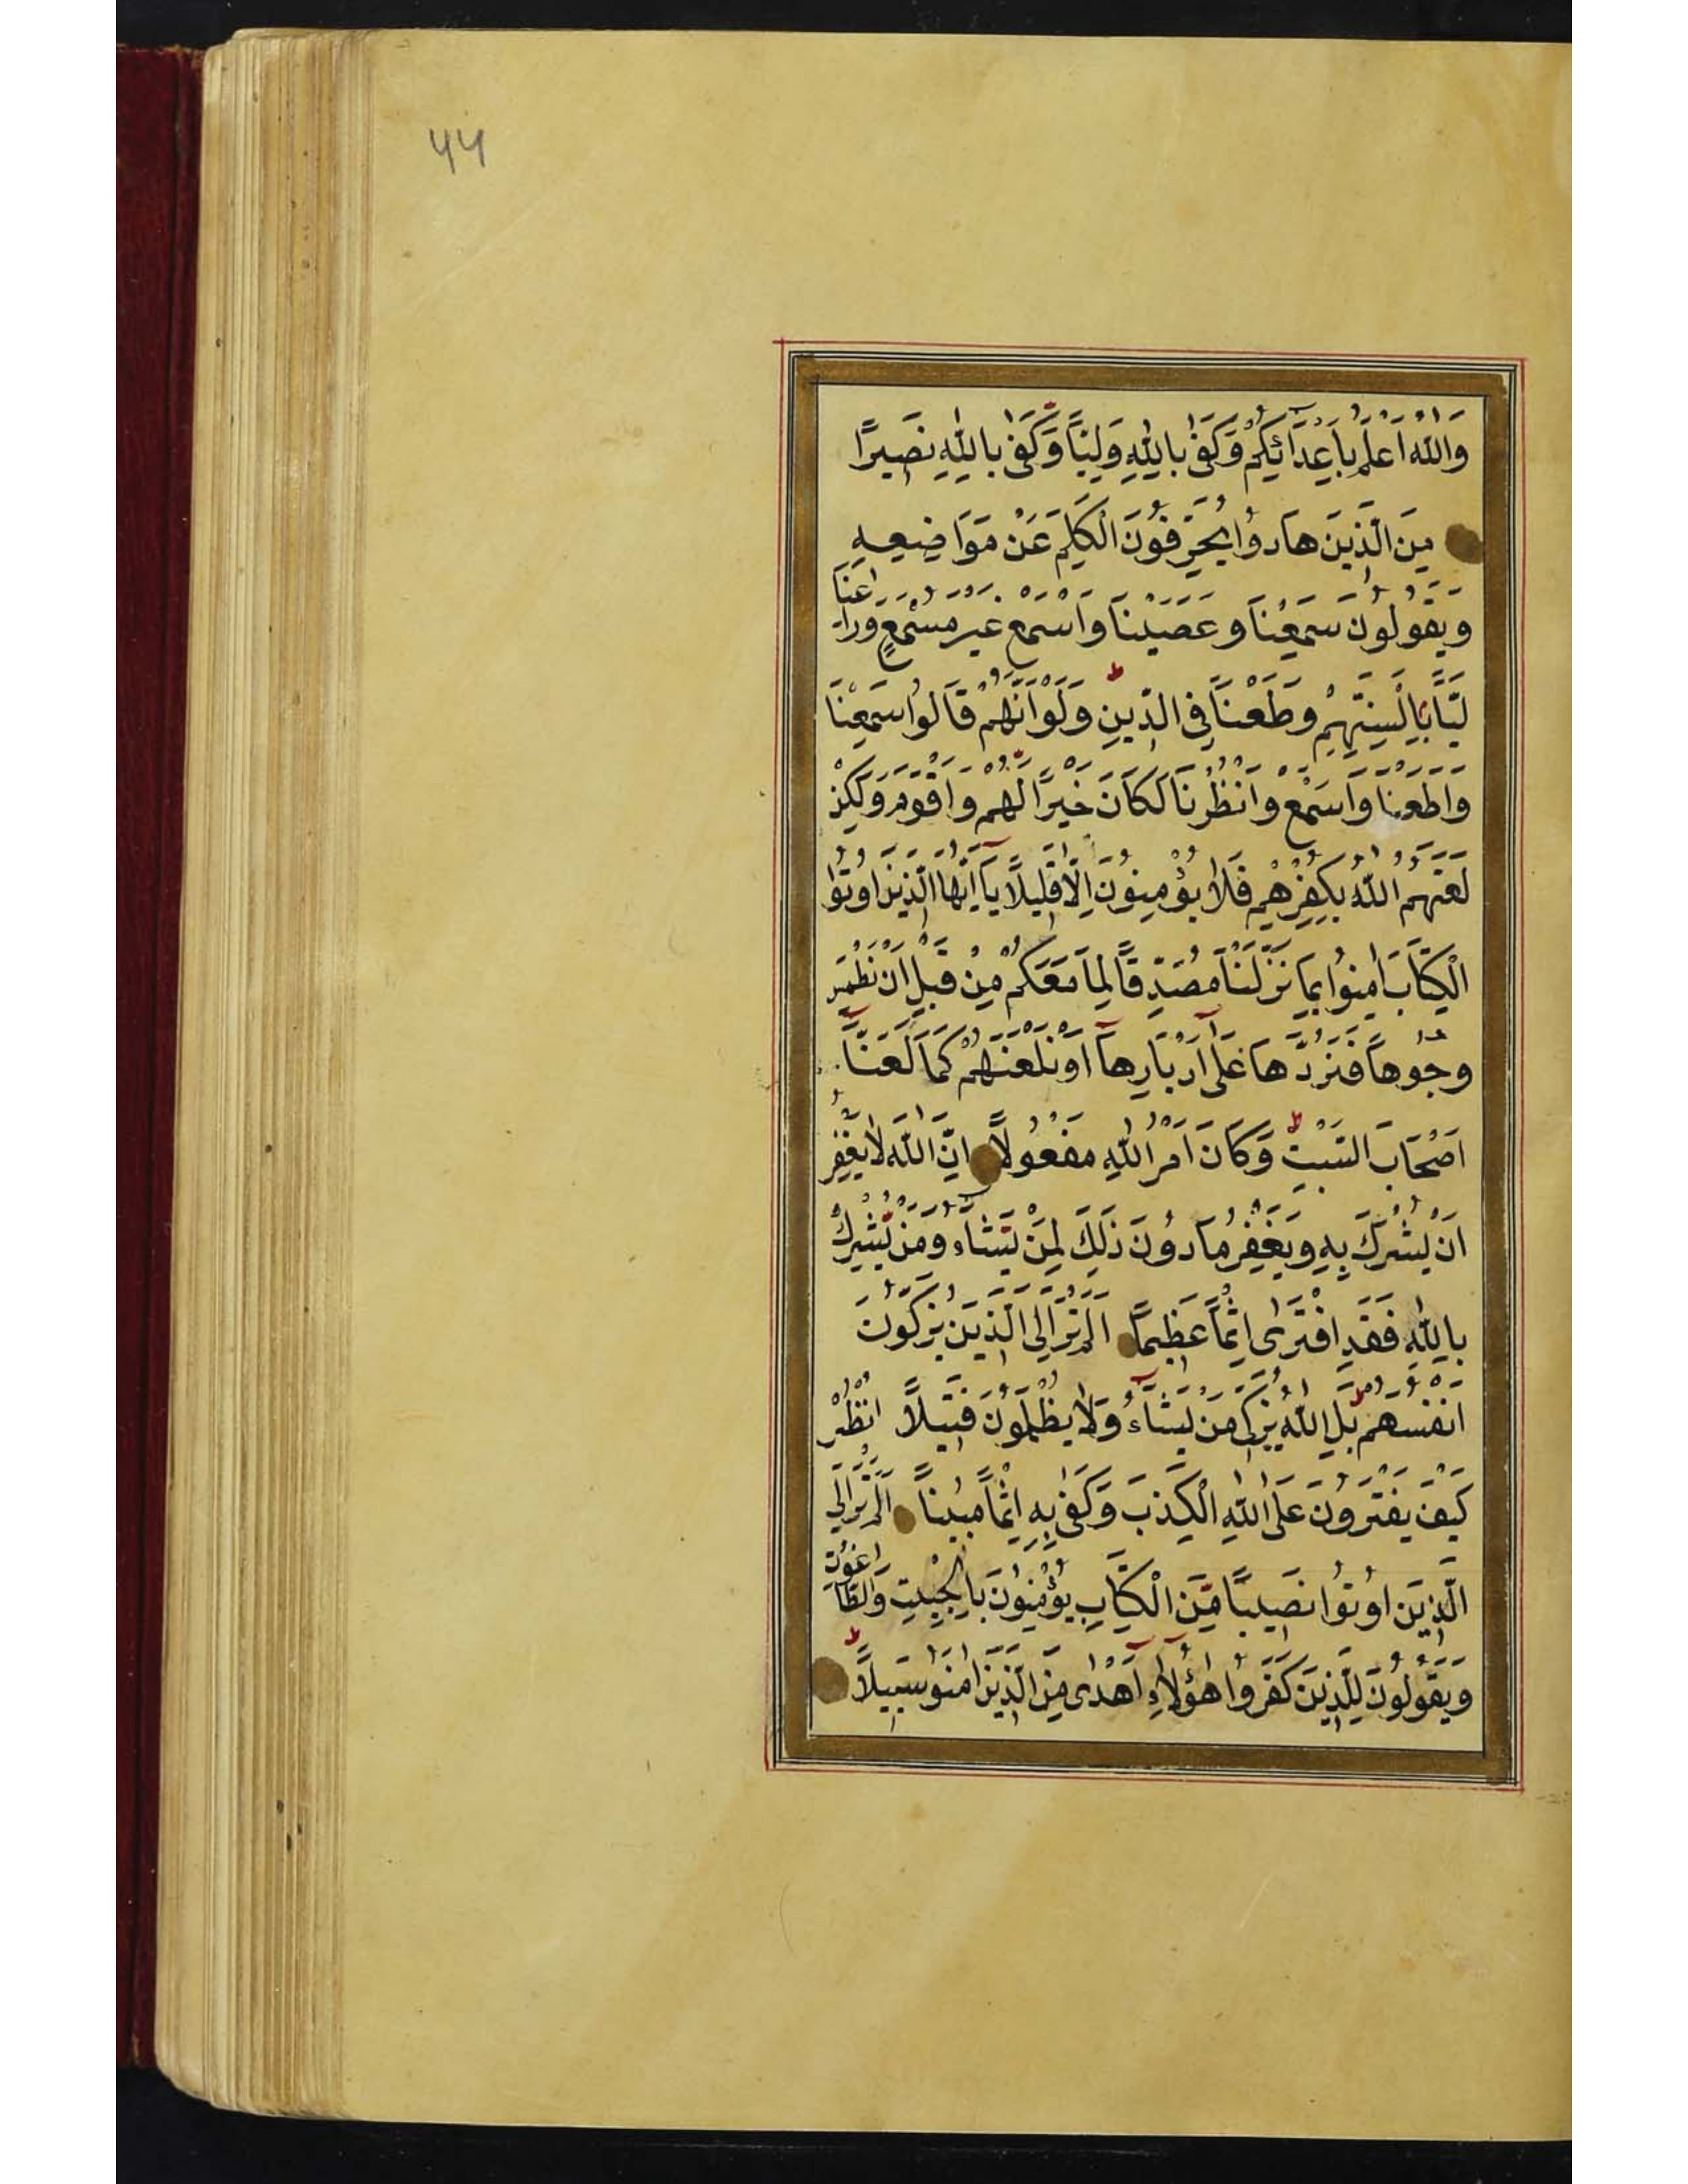 ۴۴
وَاللّٰهُ اَعْلَمُ بِاَعْدَائِكُمْ وَكَفٰى بِاللّٰهِ وَلِيًّا وَّكَفٰى بِاللّٰهِ نَصِيرًا
مِنَ الَّذِينَ هَادُوا يُحَرِّفُونَ الْكَلِمَ عَنْ مَوَاضِعِهِ
وَيَقُولُونَ سَمِعْنَا وَعَصَيْنَا وَاسْمَعْ غَيْرَ مُسْمَعٍ وَرَاعِنَا
لَيًّا بِاَلْسِنَتِهِمْ وَطَعْنًا فِي الدِّينِ وَلَوْ اَنَّهُمْ قَالُوا سَمِعْنَا
وَاَطَعْنَا وَاسْمَعْ وَانْظُرْنَا لَكَانَ خَيْرًا لَهُمْ وَاَقْوَمَ وَلٰكِنْ
لَعَنَهُمُ اللّٰهُ بِكُفْرِهِمْ فَلَا يُؤْمِنُونَ اِلَّا قَلِيلًا يَا اَيُّهَا الَّذِينَ اُوتُوا
الْكِتَابَ اٰمِنُوا بِمَا نَزَّلْنَا مُصَدِّقًا لِمَا مَعَكُمْ مِنْ قَبْلِ اَنْ نَطْمِسَ
وُجُوهًا فَنَرُدَّهَا عَلٰى اَدْبَارِهَا اَوْ نَلْعَنَهُمْ كَمَا لَعَنَّا
اَصْحَابَ السَّبْتِ وَكَانَ اَمْرُ اللّٰهِ مَفْعُولًا اِنَّ اللّٰهَ لَا يَغْفِرُ
اَنْ يُشْرَكَ بِهِ وَيَغْفِرُ مَا دُونَ ذٰلِكَ لِمَنْ يَشَاءُ وَمَنْ يُّشْرِكْ
بِاللّٰهِ فَقَدِ افْتَرٰى اِثْمًا عَظِيمًا اَلَمْ تَرَ اِلَى الَّذِينَ يُزَكُّونَ
اَنْفُسَهُمْ بَلِ اللّٰهُ يُزَكِّى مَنْ يَشَاءُ وَلَا يُظْلَمُونَ فَتِيلًا اُنْظُرْ
كَيْفَ يَفْتَرُونَ عَلَى اللّٰهِ الْكَذِبَ وَكَفٰى بِهِ اِثْمًا مُبِينًا اَلَمْ تَرَ اِلَى
الَّذِينَ اُوتُوا نَصِيبًا مِّنَ الْكِتَابِ يُؤْمِنُونَ بِالْجِبْتِ وَالطَّاغُوتِ
وَيَقُولُونَ لِلَّذِينَ كَفَرُوا هٰؤُلَاءِ اَهْدٰى مِنَ الَّذِينَ اٰمَنُوا سَبِيلًا